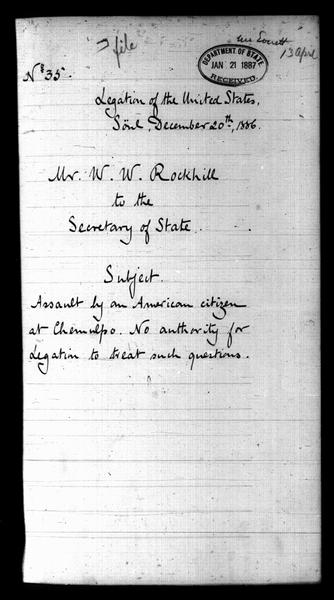 file
13 April
DEPARTMENT OF STATE
JAN 21 1887
RECEIVED.
Nº 35.
Legation of the United States,
Söul, December 20th, 1886.
Mr. W. W. Rockhill
to the
Secretary of State.
Subject.
Assault by an American citizen
at Chemulpo. No authority for
Legation to treat such questions.